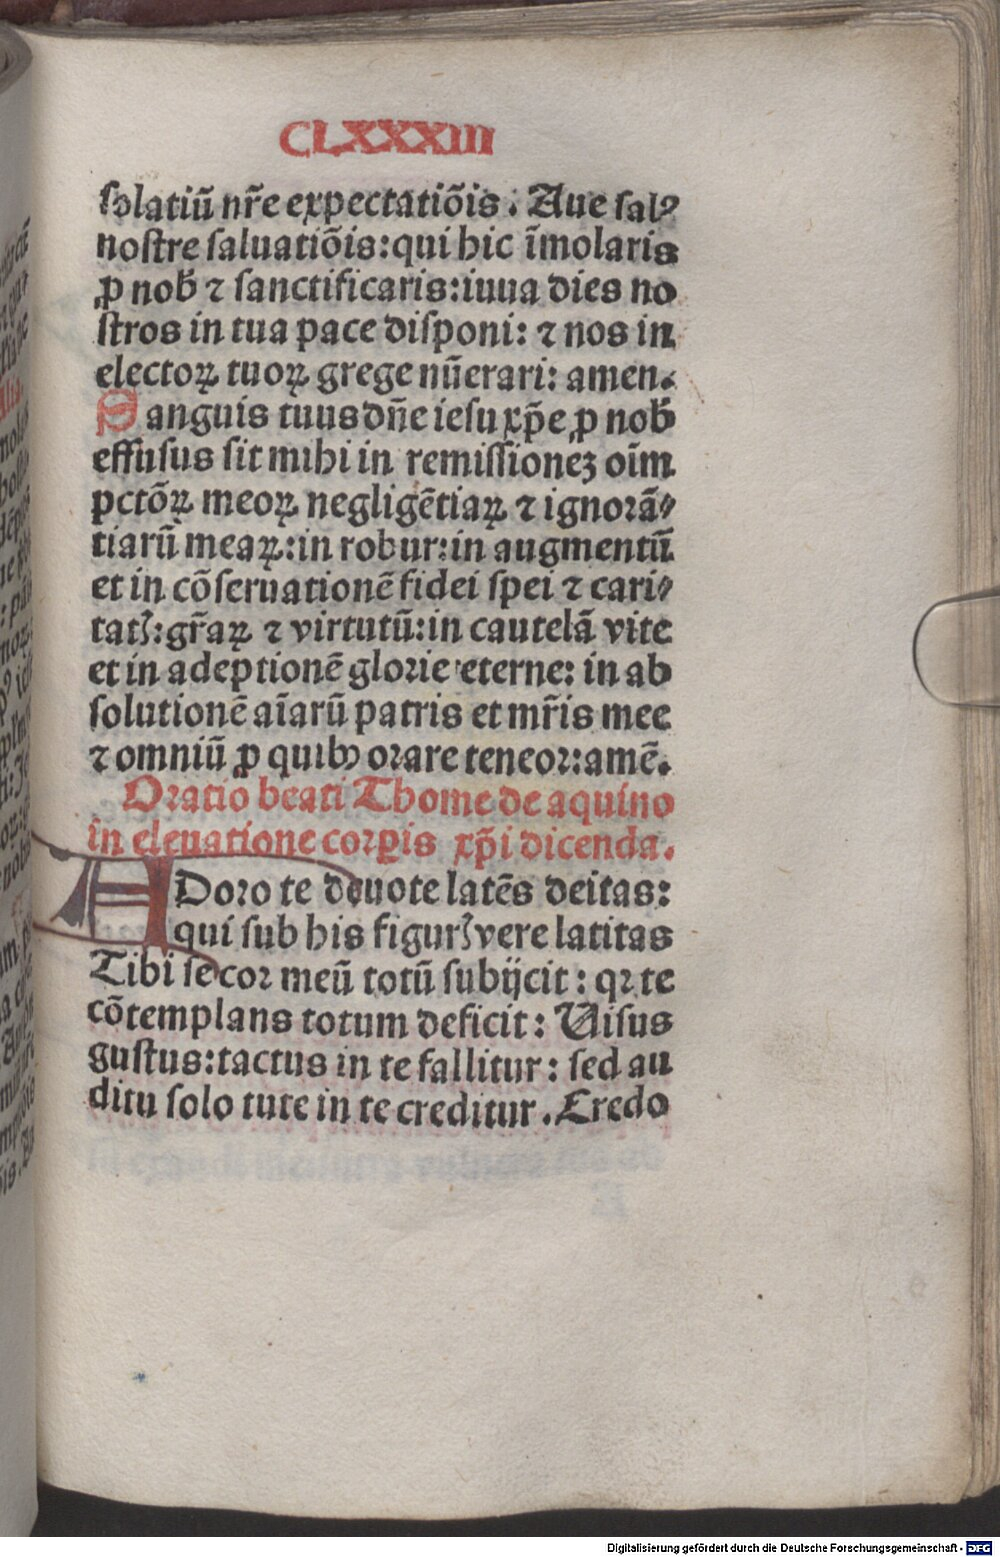 CLXXXIII
solatiū nr̄e expectatiōis : Aue salꝰ
nostre saluatiōis: qui hic īmolaris
ꝓ nob̄ ⁊ sanctificaris: iuua dies no
stros in tua pace disponi: ⁊ nos in
electoꝝ tuoꝝ grege nūerari: amen.
Sanguis tuus dn̄e iesu xp̄e ꝓ nob̄
effusus sit mihi in remissionez oīm
pctōꝝ meoꝝ negligētiaꝝ ⁊ ignorā⸗
tiarū meaꝝ: in robur: in augmentū
et in cōseruationē fidei spei ⁊ cari⸗
tatꝭ: gr̄aꝝ ⁊ virtutū: in cautelā vite
et in adeptionē glorie eterne: in ab
solutionē aīarū patris et mr̄is mee
⁊ omniū ꝓ quibꝰ orare teneor: amē.
Oratio beati Thome de aquino
in eleuatione corꝑis xp̄i dicenda.
ADoro te deuote latēs deitas:
qui sub his figurꝭ vere latitas
Tibi se cor meū totū subijcit : qꝛ te
cōtemplans totum deficit : Uisus
gustus: tactus in te fallitur : sed au
ditu solo tute in te creditur . Credo
Digitalisierung gefördert durch die Deutsche Forschungsgemeinschaft - DFG